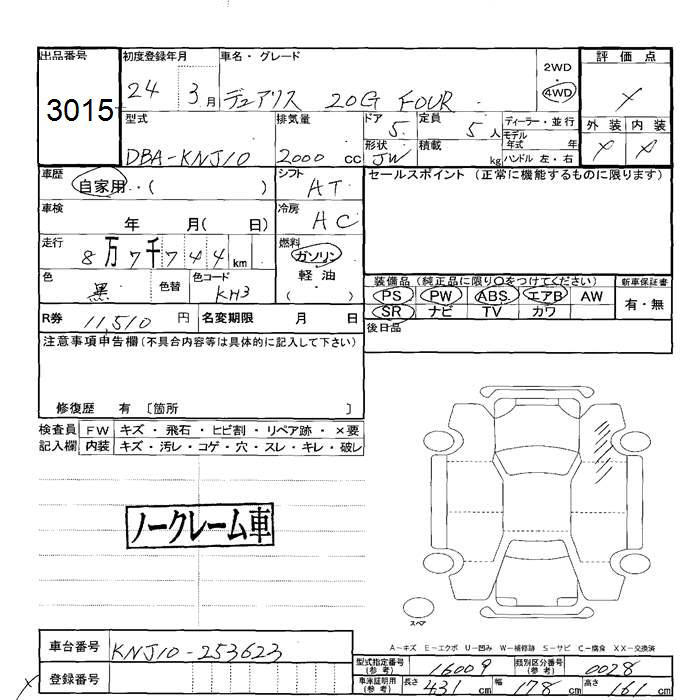 出品番号 初度登録年月 車名・グレード 2WD 評価点
3015 24 3月 デュアリス 20G FOUR 4WD ×
型式 排気量 ドア 定員 ディーラー・並行 外装 内装
DBA-KNJ10 2000 cc 5 5人 モデル年式 年 × ×
形状 JW 積載 kg ハンドル 左・右
車歴 自家用・( ) シフト AT セールスポイント (正常に機能するものに限ります)
車検 年 月( 日) 冷房 AC
走行 8万7千744km 燃料 ガソリン
軽油
( )
色 黒 色替 色コード KH3
装備品 (純正品に限り○をつけてください) 新車保証書
PS PW ABS エアB AW 有・無
SR ナビ TV カワ
R券 11,510円 名変期限 月 日 後日品
注意事項申告欄 (不具合内容等は具体的に記入して下さい)
修復歴 有 〔箇所 〕
検査員 FW キズ・飛石・ヒビ割・リペア跡・×要
記入欄 内装 キズ・汚レ・コゲ・穴・スレ・キレ・破レ
ノークレーム車
スペア
A−キズ E−エクボ U−凹み W−補修跡 S−サビ C−腐食 XX−交換済
車台番号 KNJ10-253623
登録番号
型式指定番号(参考) 16009 類別区分番号(参考) 0028
車庫証明用(参考) 長さ 431cm 幅 178cm 高さ 161cm
×